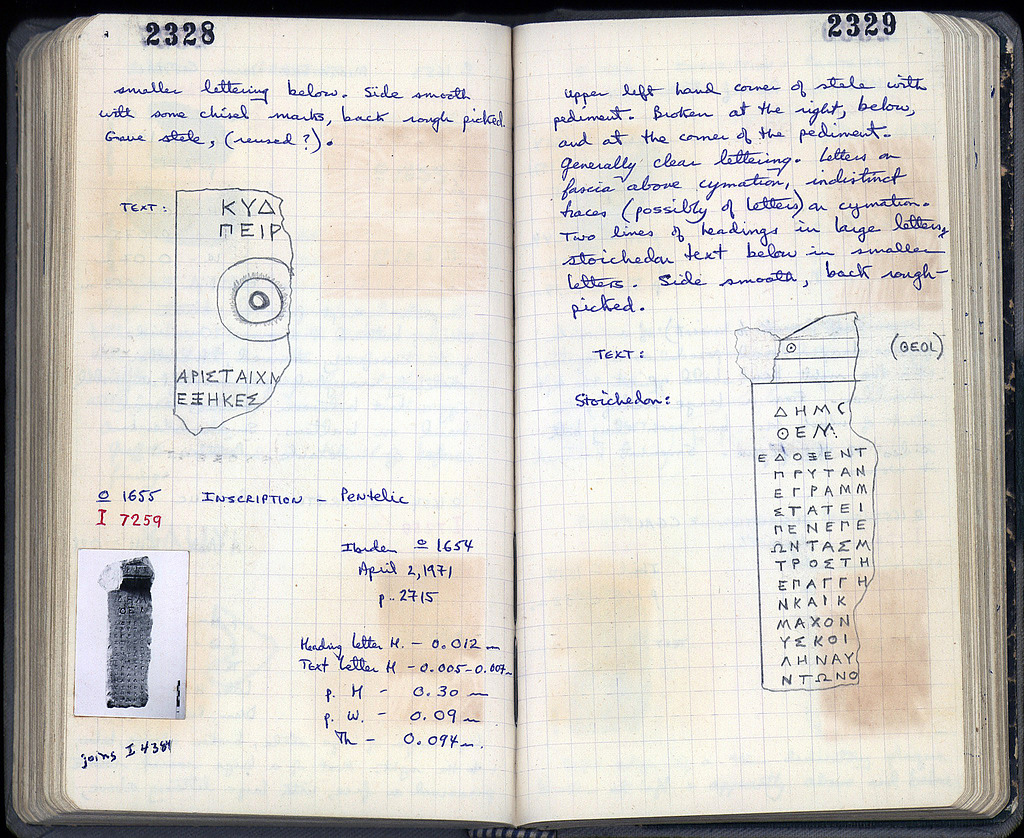 2328
smaller lettering below. Side smooth
with some chisel marks, back rough picked.
Grave stele, (reused?).
TEXT:
ΚΥΔ
ΠΕΙΡ
ΑΡΙΣΤΑΙΧΜ
ΕΞΗΚΕΣ
o 1655 INSCRIPTION – Pentelic
I 7259
Ibidem o 1654
April 2, 1971
p. 2715
Heading letter H. – 0.012 m
Text letter H – 0.005–0.007 m
p. H – 0.30 m
p. W. – 0.09 m
Th – 0.094 m.
joins I 4384
2329
Upper left hand corner of stele with
pediment. Broken at the right, below,
and at the corner of the pediment.
Generally clear lettering. Letters on
fascia above cymation, indistinct
traces (possibly of letters) on cymation.
Two lines of headings in large letters,
stoichedon text below in smaller
letters. Side smooth, back rough-
picked.
TEXT:
ʘ
(ΘΕΟΙ)
Stoichedon:
ΔΗΜΟ
ΘΕΜ
ΕΔΟΞΕΝΤ
ΠΡΥΤΑΝ
ΕΓΡΑΜΜ
ΣΤΑΤΕΙ
ΠΕΝΕΠΕ
ΩΝΤΑΣΜ
ΤΡΟΣΤΗ
ΕΠΑΓΓΗ
ΝΚΑΙΚ
ΜΑΧΟΝ
ΥΣΚΟΙ
ΛΗΝΑΥ
ΝΤΩΝΟ